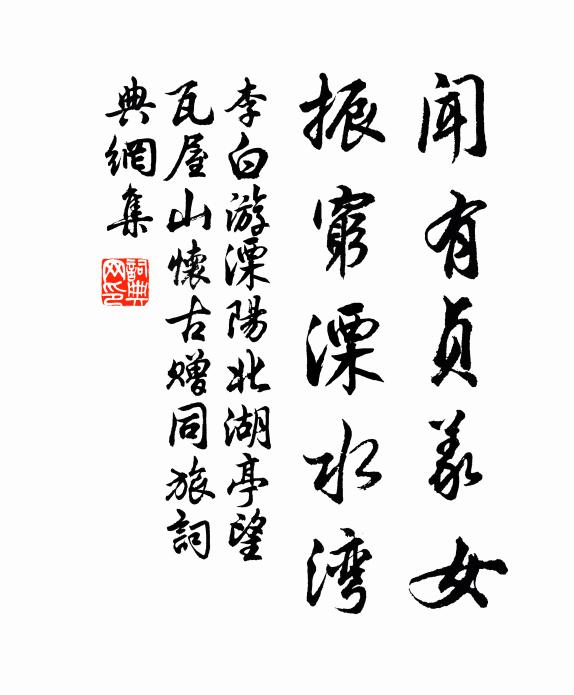 闻有贞义女
振穷溧水湾
李白游溧陽北湖亭望
瓦屋山懷古赠同旅詞
典網集
詞典
网印